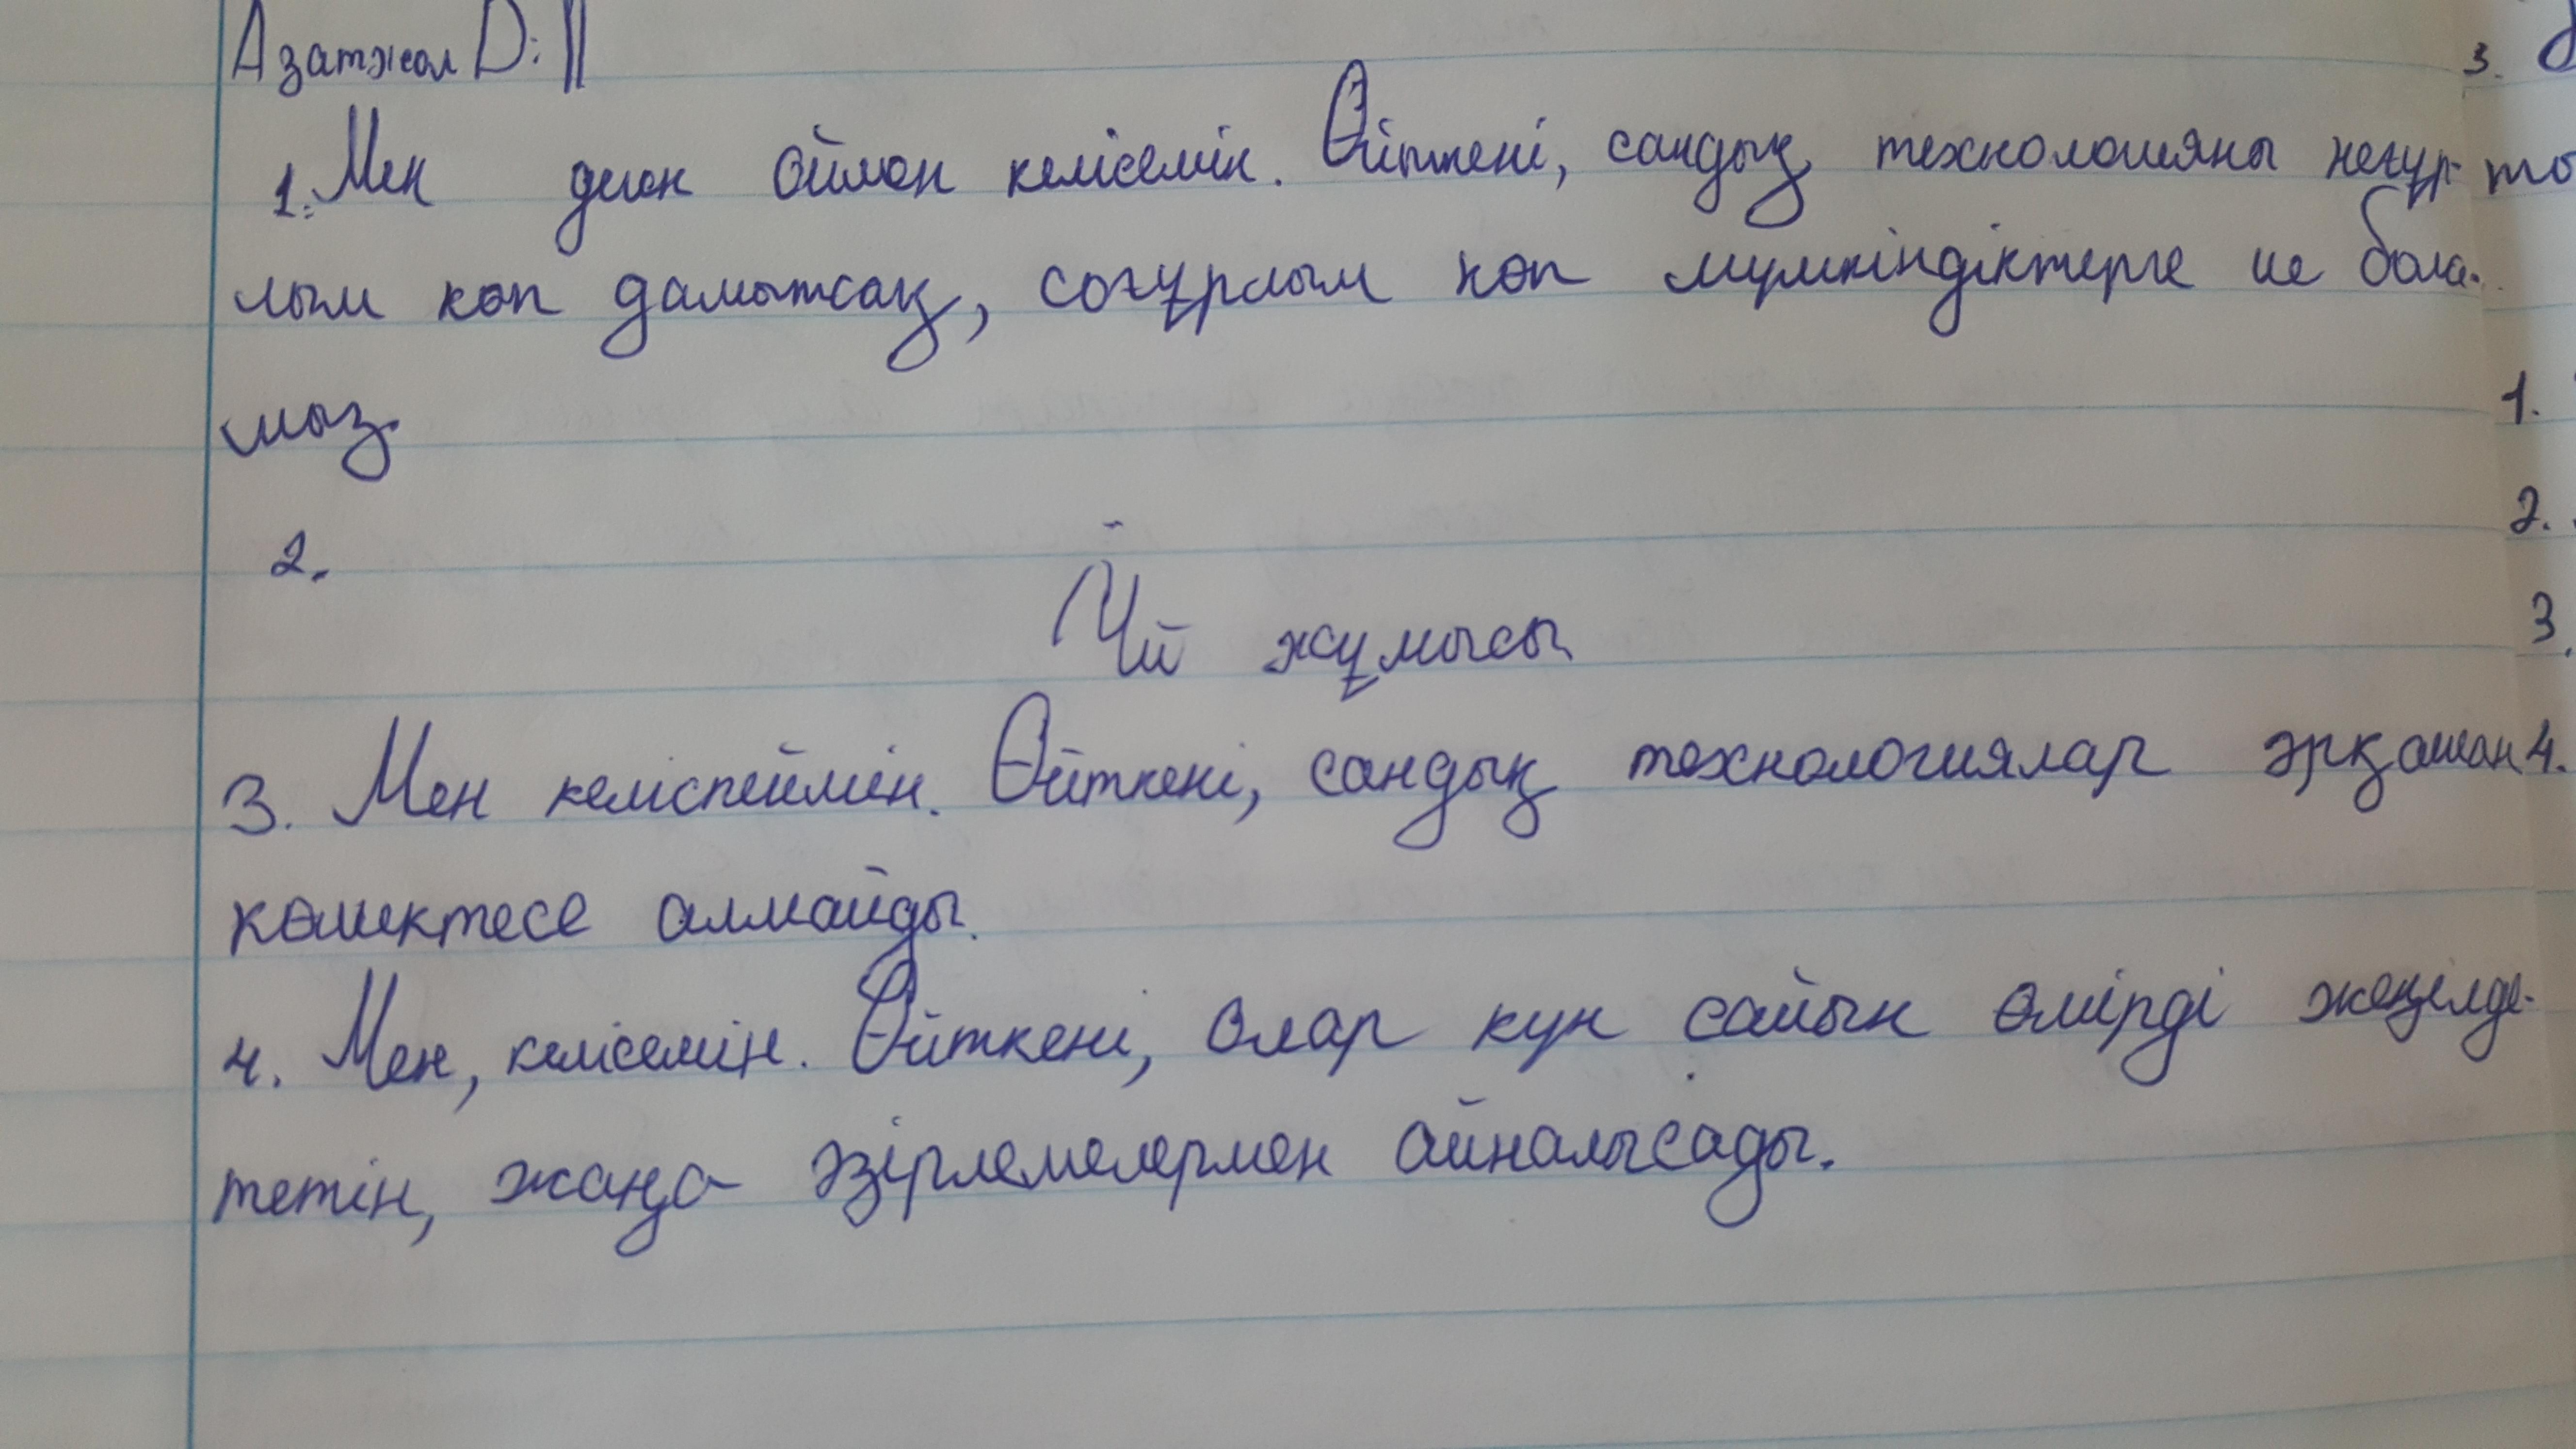 Азатжол D: ||
1. Мен деген оймен келісемін. Өйткені, сандық технологияны неғұр-
лым көп дамытсақ, соғұрлым көп мүмкіндіктерге ие бола-
мыз.
2.
Үй жұмысы
3. Мен келіспеймін. Өйткені, сандық технологиялар әрқашан
көмектесе алмайды.
4. Мен, келісемін. Өйткені, олар күн сайын өмірді жеңілде-
тетін, жаңа әзірлемелермен айналысады.
3.
то
1.
2.
3.
4.